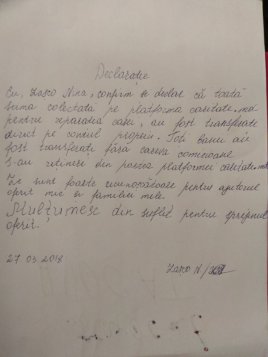 Declarație
Eu, Lasco Nina, confirm și declar că toată
suma colectată pe platforma caritate.md
pentru reparația casei, au fost transferate
direct pe contul propriu. Toți banii au
fost transferați fără careva comisioane
s-au rețineri din partea platformei caritate.md
Vă sunt foarte recunoscătoare pentru ajutorul
oferit mie și familiei mele.
Mulțumesc din suflet pentru sprijinul
oferit!
27 03 2018
Lasco N/